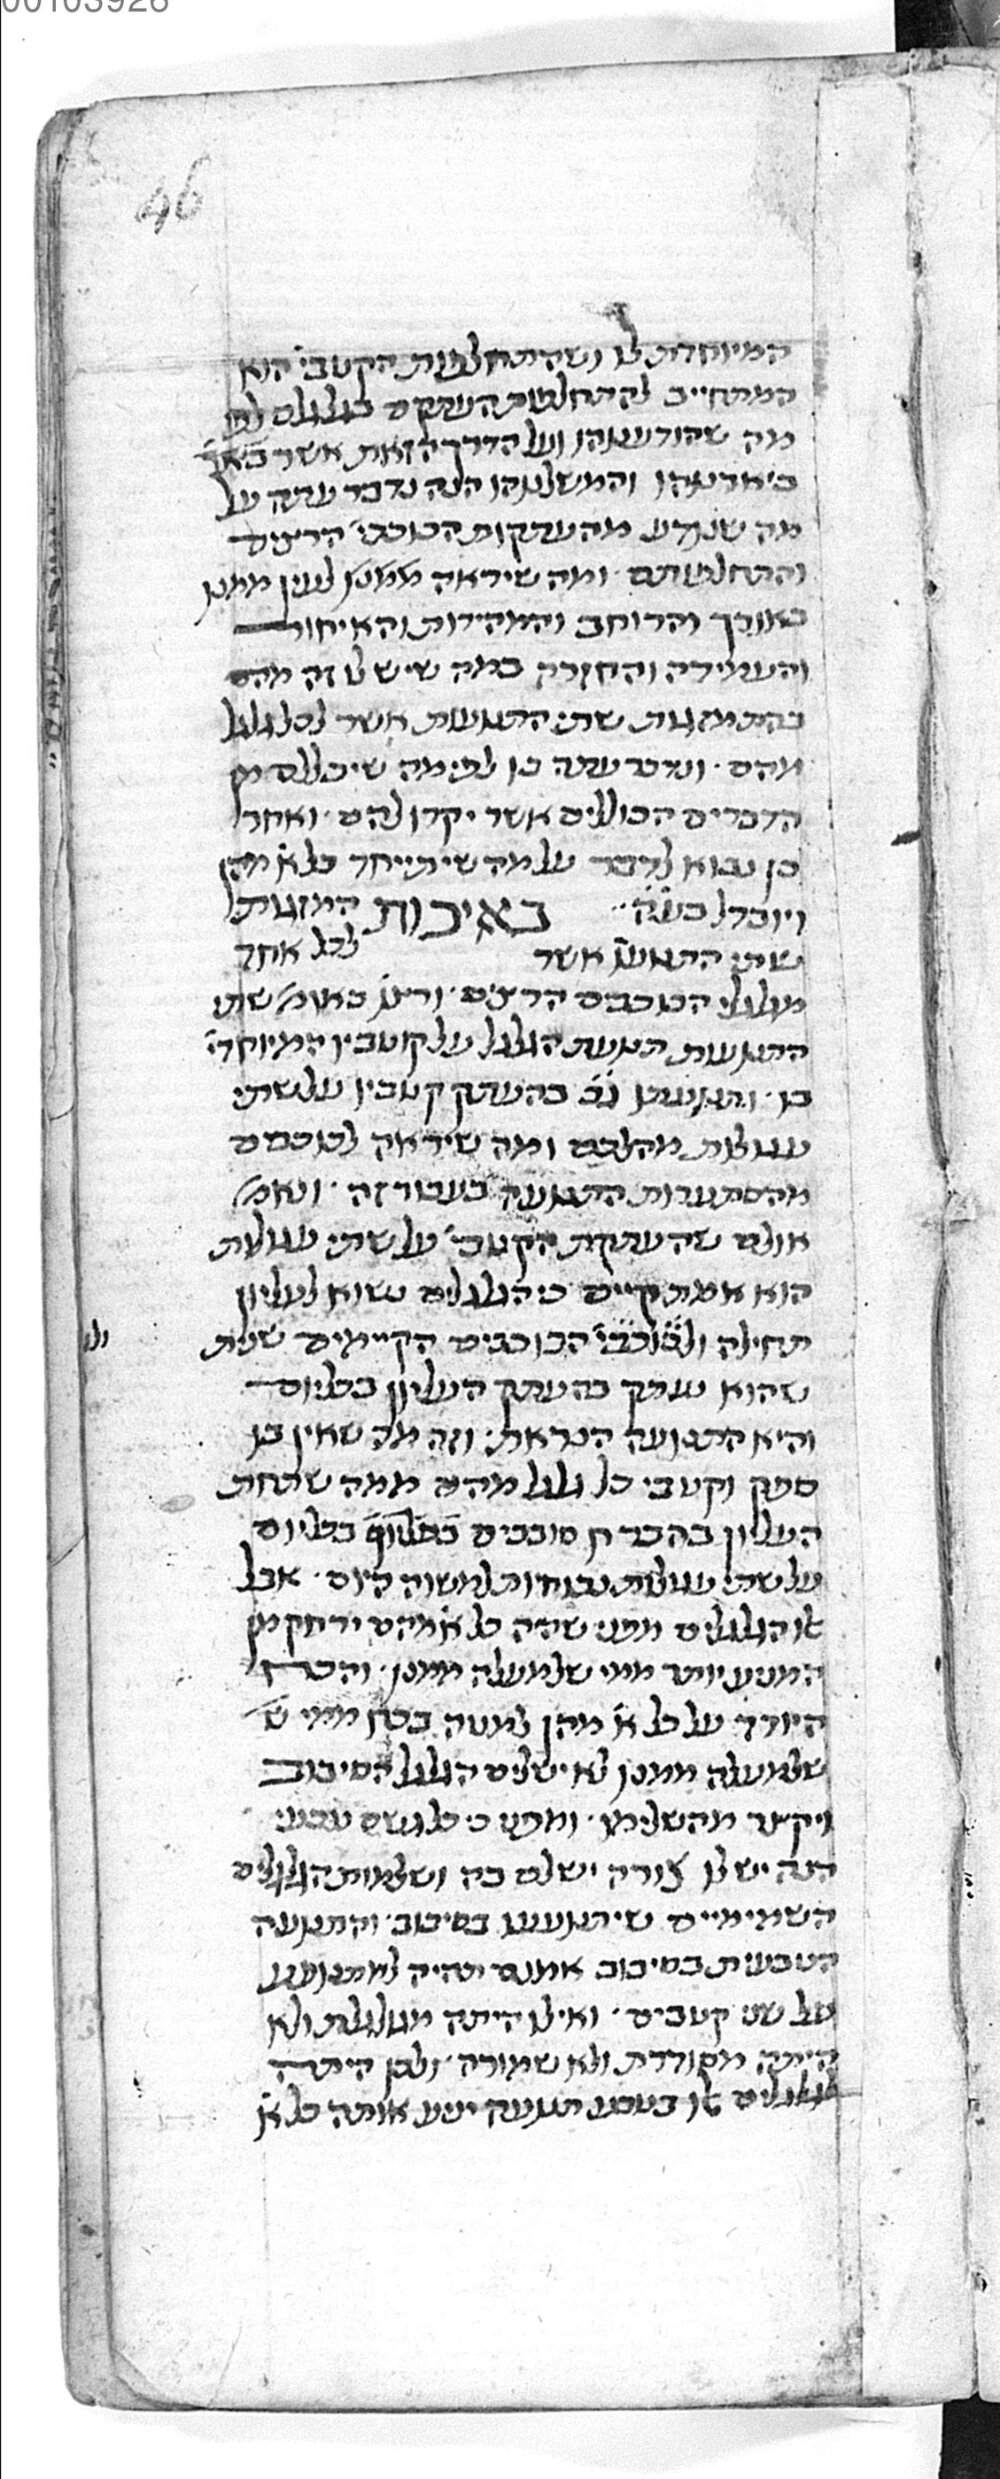 00103926
46
המיוחדת לו ושהתחלפות הקטבי' הוא
המתחייב להתחלפות העתקם בגלגלם לפי
מה שהודענוהו ועל הדרך הזאת אשר
ביארנוהו והמשלנוהו הנה נדבר עתה על
מה שנודע מהעתקות הכוכבי' הרצים
והתחלפותם ומה שיראה ממנו לעין ממנו
באורך והרוחב והמהירות והאיחור
והעמידה והחזרה במה שיש לו זה מהם
בהתמזגות שתי התנועות אשר לכל גלגל
מהם ונדבר עתה בו לפי מה שיכללם מן
הדברים הכוללים אשר יקרו להם ואחר
כן נבוא לדבר על מה שיתייחד כל א' מהן
ויובדל בע"ה באיכות המזגות
שתי התנועו' אשר לכל אחד
מגלגלי הכוכבים הרצים ורצונו באומ' שתי
התנועות תנועת הגלגל על קוטביו המיוחדי'
בו ותנועתו ג"כ בהעתק קטביו על שתי
עגולות מהלכם ומה שיראה לכוכבים
מהסתערות התנועה בעבור זה ונאמ'
אולם שהעתקת הקטבי' על שתי עגולות
הוא אמת קיים כי הגלגלים נשוא לעליון
תחילה ולגלגלי הכוכבים הקיימים שנית
ולג
שהוא נעתק בהעתק העליון בכל יום
והיא התנועה הנראת וזה מה שאין בו
ספק וקטבי כל גלגל מהם ממה שתחת
העליון בהכרח סובבים בכל יום
על שתי עגולות נכוחיות למשוה היום אבל
אלו הגלגלים מפני שהיה כל א' מהם ירחק מן
המניע יותר ממי שלמעלה ממנו והכח
היורד על כל א' מהן למטה בכח ממי ש
שלמעלה ממנו לא ישלים הגלגל הסיבוב
ויקצר מהשלימו ומפני כי כל גשם טבעי
הנה יש לו צורה ישלם בה ושלמות הגלגלים
השמימיים שיתנועעו בסיבוב והתנועה
הטבעית בסיבוב אמנם תהיה למתנועע
על שני קטבים ואילו היתה מגולגלת ולא
היתה מסודרת ולא שמורה ולכן היתה
לגלגלים אלו בטבע תנועה ינוע אותה כל א'